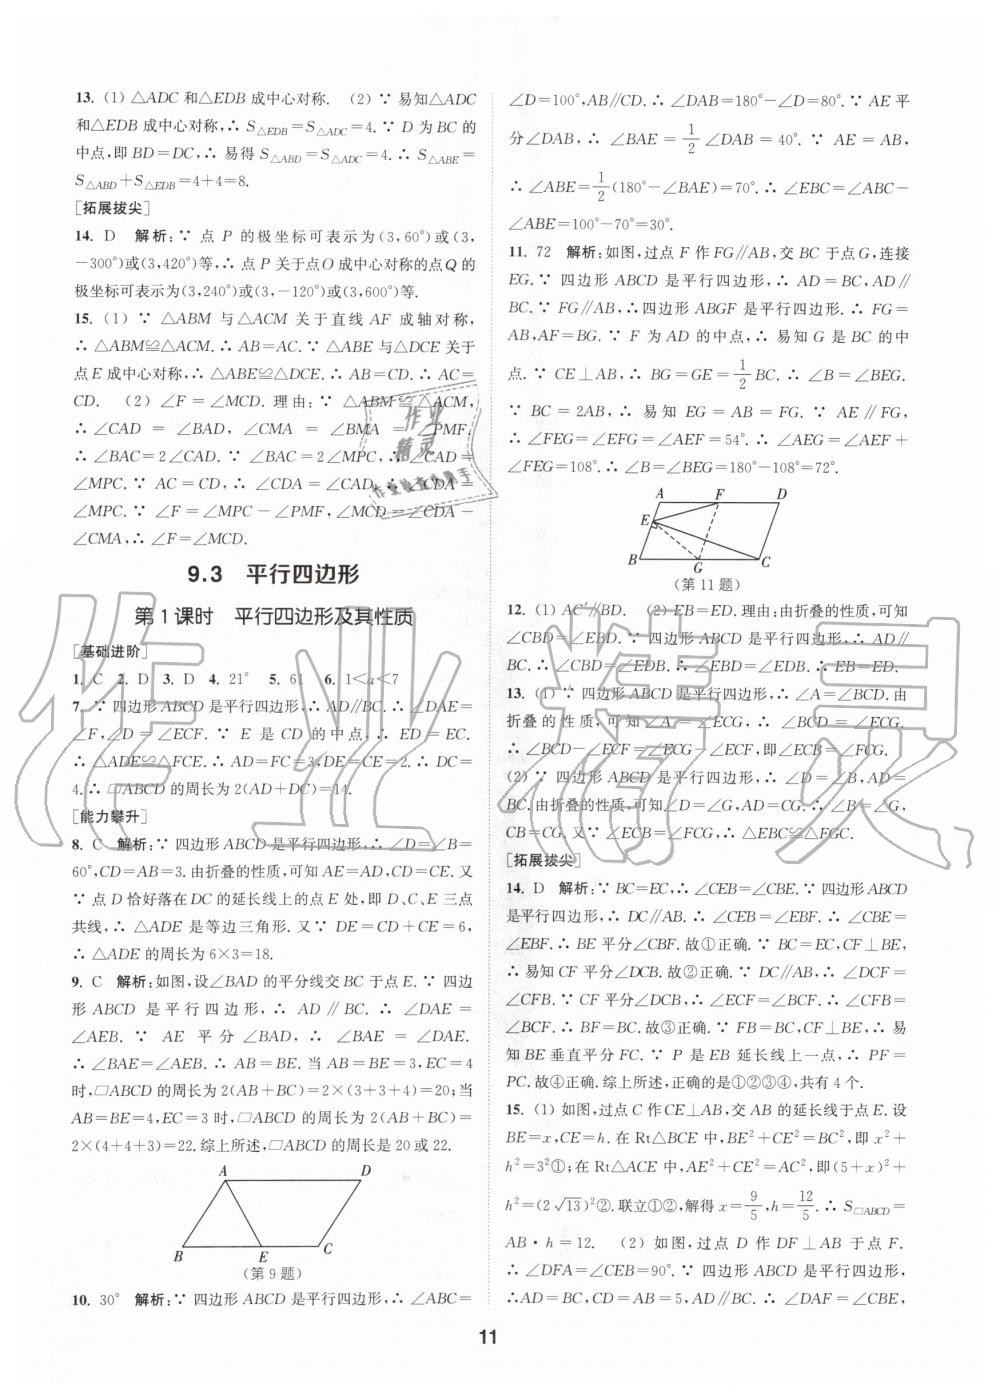 13. (1) △ADC 和△EDB 成中心对称. (2) ∵ 易知△ADC
和△EDB 成中心对称,∴ S△EDB=S△ADC=4.∵ D 为 BC 的
中点,即 BD=DC,∴ 易得 S△ABD=S△ADC=4.∴ S△ABE=
S△ABD+S△EDB=4+4=8.
[拓展拔尖]
14. D 解析:∵ 点 P 的极坐标可表示为(3,60°)或(3,
-300°)或(3,420°)等,∴ 点 P 关于点O 成中心对称的点Q 的
极坐标可表示为(3,240°)或(3,-120°)或(3,600°)等.
15. (1) ∵ △ABM 与△ACM 关于直线 AF 成轴对称,
∴ △ABM≌△ACM.∴ AB=AC.∵ △ABE 与△DCE 关于
点E 成中心对称,∴ △ABE≌△DCE.∴ AB=CD.∴ AC=
CD. (2) ∠F=∠MCD.理由:∵ △ABM≌△ACM,
∴ ∠CAD=∠BAD,∠CMA=∠BMA=∠PMF.
∴ ∠BAC=2∠CAD.∵ ∠BAC=2∠MPC,∴ ∠CAD=
∠MPC.∵ AC=CD,∴ ∠CDA=∠CAD.∴ ∠CDA=
∠MPC.∵ ∠F=∠MPC-∠PMF,∠MCD=∠CDA-
∠CMA,∴ ∠F=∠MCD.
9.3 平行四边形
第 1 课时 平行四边形及其性质
[基础进阶]
1. C 2. D 3. D 4. 21° 5. 61 6. 1<a<7
7. ∵ 四边形ABCD 是平行四边形,∴ AD∥BC.∴ ∠DAE=
∠F,∠D=∠ECF.∵ E 是 CD 的中点,∴ ED=EC.
∴ △ADE≌△FCE.∴ AD=FC=3,DE=CE=2.∴ DC=
4.∴ □ABCD 的周长为 2(AD+DC)=14.
[能力攀升]
8. C 解析:∵ 四边形ABCD 是平行四边形,∴ ∠D=∠B=
60°,CD=AB=3.由折叠的性质,可知 AE=AD,CD=CE.又
∵ 点D 恰好落在DC 的延长线上的点E 处,即D、C、E 三点
共线,∴ △ADE 是等边三角形.又∵ DE=CD+CE=6,
∴ △ADE 的周长为 6×3=18.
9. C 解析:如图,设∠BAD 的平分线交BC 于点E.∵ 四边
形 ABCD 是平行四边形,∴ AD∥BC.∴ ∠DAE=
∠AEB.∵ AE 平分∠BAD,∴ ∠BAE=∠DAE.
∴ ∠BAE=∠AEB.∴ AB=BE.当 AB=BE=3,EC=4
时,□ABCD 的周长为 2(AB+BC)=2×(3+3+4)=20;当
AB=BE=4,EC=3 时,□ABCD 的周长为 2(AB+BC)=
2×(4+4+3)=22.综上所述,□ABCD 的周长是 20 或 22.
A D
B E C
(第 9 题)
10. 30° 解析:∵ 四边形 ABCD 是平行四边形,∴ ∠ABC=
∠D=100°,AB∥CD.∴ ∠DAB=180°-∠D=80°.∵ AE 平
分∠DAB,∴ ∠BAE=1/2∠DAB=40°.∵ AE=AB,
∴ ∠ABE=1/2(180°-∠BAE)=70°.∴ ∠EBC=∠ABC-
∠ABE=100°-70°=30°.
11. 72 解析:如图,过点 F 作FG∥AB,交 BC 于点G,连接
EG.∵ 四边形 ABCD 是平行四边形,∴ AD=BC,AD∥
BC.∵ FG∥AB,∴四边形 ABGF 是平行四边形.∴ FG=
AB,AF=BG.∵ F 为 AD 的中点,∴ 易知 G 是 BC 的中
点.∵ CE⊥AB,∴ BG=GE=1/2BC.∴ ∠B=∠BEG.
∵ BC=2AB,∴ 易知 EG=AB=FG.∵ AE∥FG,
∴ ∠FEG=∠EFG=∠AEF=54°.∴ ∠AEG=∠AEF+
∠FEG=108°.∴ ∠B=∠BEG=180°-108°=72°.
A F D
E
B G C
(第 11 题)
12. (1) AC′∥BD. (2) EB=ED.理由:由折叠的性质,可知
∠CBD=∠EBD.∵ 四边形 ABCD 是平行四边形,∴ AD∥
BC.∴ ∠CBD=∠EDB.∴ ∠EBD=∠EDB.∴ EB=ED.
13. (1) ∵ 四边形ABCD 是平行四边形,∴ ∠A=∠BCD.由
折叠的性质,可知∠A=∠ECG,∴ ∠BCD=∠ECG.
∴ ∠BCD-∠ECF=∠ECG-∠ECF,即∠ECB=∠FCG.
(2) ∵ 四边形 ABCD 是平行四边形,∴ ∠D=∠B,AD=
BC.由折叠的性质,可知∠D=∠G,AD=CG.∴ ∠B=∠G,
CB=CG.又∵ ∠ECB=∠FCG,∴ △EBC≌△FGC.
[拓展拔尖]
14. D 解析:∵ BC=EC,∴ ∠CEB=∠CBE.∵ 四边形ABCD
是平行四边形,∴ DC∥AB.∴ ∠CEB=∠EBF.∴ ∠CBE=
∠EBF.∴ BE 平分∠CBF.故①正确.∵ BC=EC,CF⊥BE,
∴ 易知 CF 平分∠DCB.故②正确.∵ DC∥AB,∴ ∠DCF=
∠CFB.∵ CF 平分∠DCB,∴ ∠ECF=∠BCF.∴ ∠CFB=
∠BCF.∴ BF=BC.故③正确.∵ FB=BC,CF⊥BE,∴ 易
知 BE 垂直平分 FC.∵ P 是 EB 延长线上一点,∴ PF=
PC.故④正确.综上所述,正确的是①②③④,共有 4 个.
15. (1) 如图,过点C 作CE⊥AB,交 AB 的延长线于点E.设
BE=x,CE=h.在 Rt△BCE 中,BE²+CE²=BC²,即 x²+
h²=3²①;在 Rt△ACE 中,AE²+CE²=AC²,即(5+x)²+
h²=(2√13)²②.联立①②,解得 x=9/5,h=12/5.∴ S□ABCD=
AB·h=12. (2) 如图,过点 D 作 DF⊥AB 于点 F.
∴ ∠DFA=∠CEB=90°.∵ 四边形 ABCD 是平行四边形,
∴ AD=BC,CD=AB=5,AD∥BC.∴ ∠DAF=∠CBE,
11
作业精灵
作业
精灵
作业检查小助手